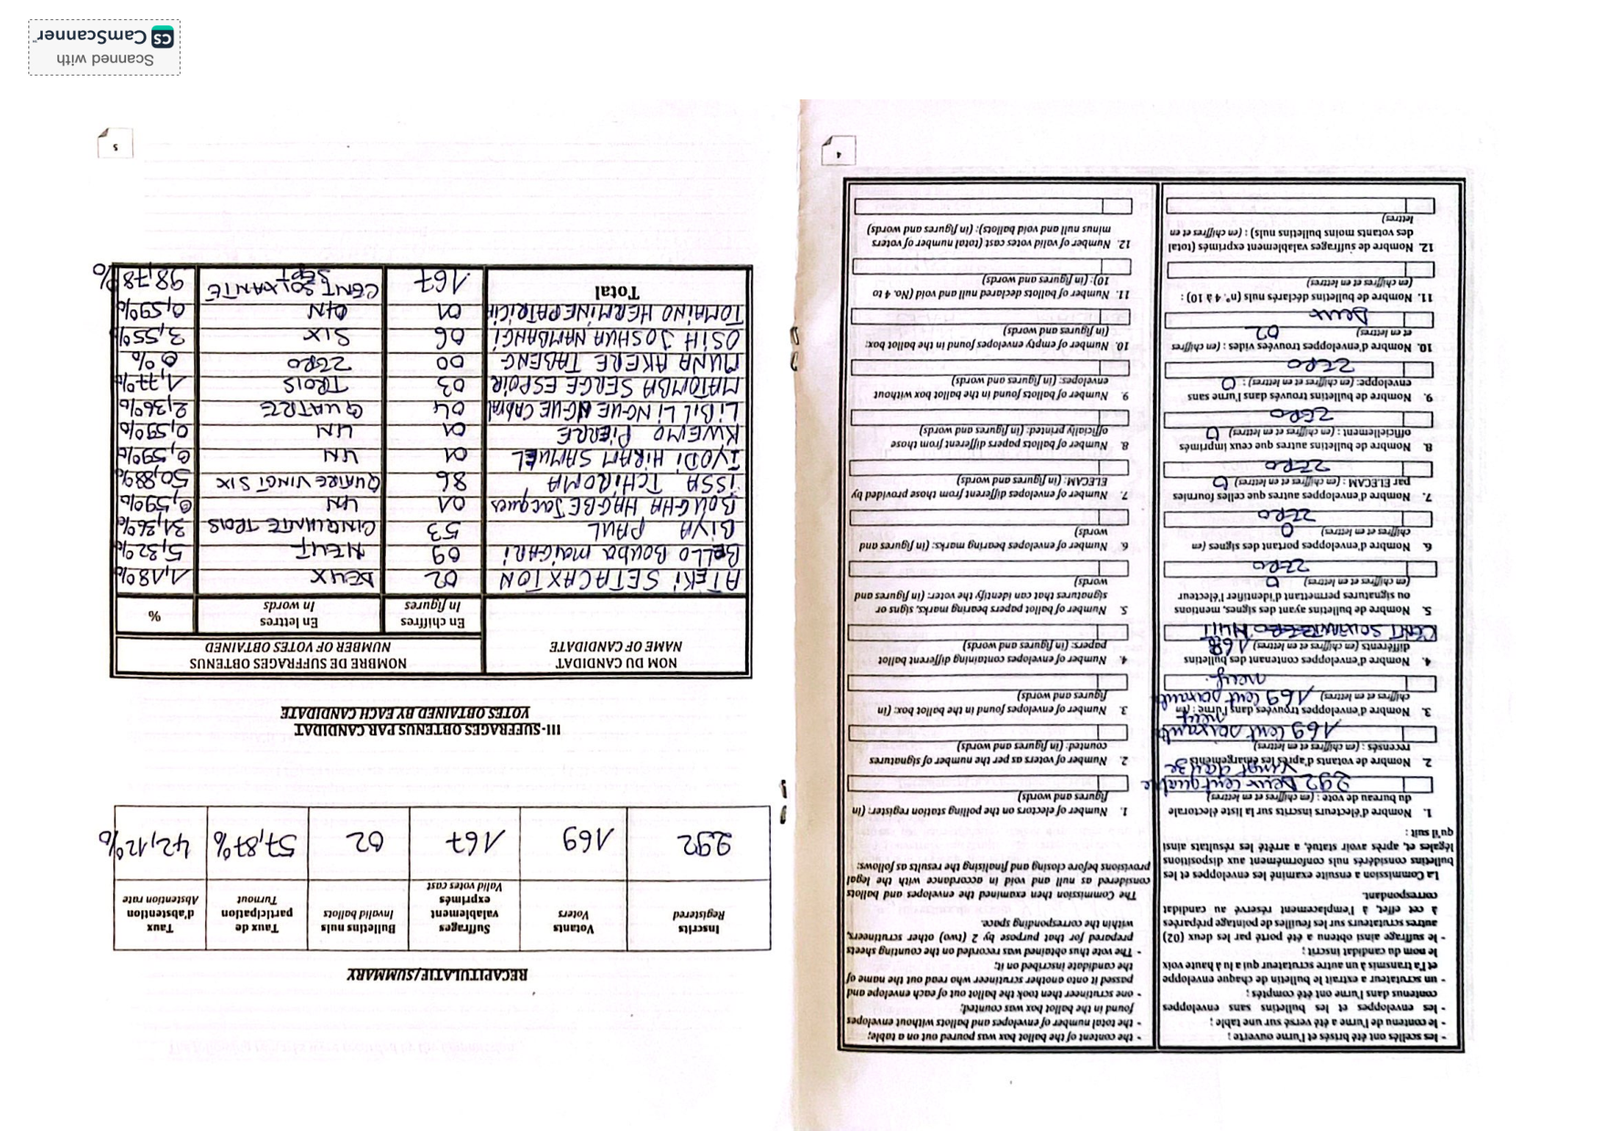 4
- les scellés ont été brisés et l'urne ouverte ;
- le contenu de l'urne a été versé sur une table ;
- les enveloppes et les bulletins sans enveloppes
contenus dans l'urne ont été comptés ;
- un scrutateur a extrait le bulletin de chaque enveloppe
et l'a transmis à un autre scrutateur qui a lu à haute voix
le nom du candidat inscrit ;
- le suffrage ainsi obtenu a été porté par les deux (02)
autres scrutateurs sur les feuilles de pointage préparées
à cet effet, à l'emplacement réservé au candidat
correspondant.
La Commission a ensuite examiné les enveloppes et les
bulletins considérés nuls conformément aux dispositions
légales et, après avoir statué, a arrêté les résultats ainsi
qu'il suit :
1. Nombre d'électeurs inscrits sur la liste électorale
du bureau de vote : (en chiffres et en lettres)
292 Deux cent quatre
vingt douze
2. Nombre de votants d'après les émargements
recensés : (en chiffres et en lettres)
169 cent soixante
neuf
3. Nombre d'enveloppes trouvées dans l'urne : (en
chiffres et en lettres) 169 cent soixante
neuf.
4. Nombre d'enveloppes contenant des bulletins
différents (en chiffres et en lettres) 168
CENT SOIXANTE HUIT
5. Nombre de bulletins ayant des signes, mentions
ou signatures permettant d'identifier l'électeur
(en chiffres et en lettres) 0
ZERO
6. Nombre d'enveloppes portant des signes (en
chiffres et en lettres) 0
ZERO
7. Nombre d'enveloppes autres que celles fournies
par ELECAM : (en chiffres et en lettres) 0
ZERO
8. Nombre de bulletins autres que ceux imprimés
officiellement : (en chiffres et en lettres) 0
ZERO
9. Nombre de bulletins trouvés dans l'urne sans
enveloppe: (en chiffres et en lettres) : 0
ZERO
10. Nombre d'enveloppes trouvées vides : (en chiffres
et en lettres) 02
Deux
11. Nombre de bulletins déclarés nuls (n° 4 à 10) :
(en chiffres et en lettres)
12. Nombre de suffrages valablement exprimés (total
des votants moins bulletins nuls) : (en chiffres et en
lettres)
- the content of the ballot box was poured out on a table;
- the total number of envelopes and ballots without envelopes
found in the ballot box was counted;
- one scrutineer then took the ballot out of each envelope and
passed it onto another scrutineer who read out the name of
the candidate inscribed on it;
- The vote thus obtained was recorded on the counting sheets
prepared for that purpose by 2 (two) other scrutineers,
within the corresponding space.
The Commission then examined the envelopes and ballots
considered as null and void in accordance with the legal
provisions before closing and finalising the results as follows:
1. Number of electors on the polling station register: (in
figures and words)
2. Number of voters as per the number of signatures
counted: (in figures and words)
3. Number of envelopes found in the ballot box: (in
figures and words)
4. Number of envelopes containing different ballot
papers: (in figures and words)
5. Number of ballot papers bearing marks, signs or
signatures that can identify the voter: (in figures and
words)
6. Number of envelopes bearing marks: (in figures and
words)
7. Number of envelopes different from those provided by
ELECAM: (in figures and words)
8. Number of ballots papers different from those
officially printed: (in figures and words)
9. Number of ballots found in the ballot box without
envelopes: (in figures and words)
10. Number of empty envelopes found in the ballot box:
(in figures and words)
11. Number of ballots declared null and void (No. 4 to
10): (in figures and words)
12. Number of valid votes cast (total number of voters
minus null and void ballots): (in figures and words)
RECAPITULATIF/SUMMARY
Inscrits Registered | Votants Voters | Suffrages valablement exprimés Valid votes cast | Bulletins nuls Invalid ballots | Taux de participation Turnout | Taux d'abstention Abstention rate
292 | 169 | 167 | 02 | 57,87% | 42,12%
III-SUFFRAGES OBTENUS PAR CANDIDAT
VOTES OBTAINED BY EACH CANDIDATE
NOM DU CANDIDAT NAME OF CANDIDATE | NOMBRE DE SUFFRAGES OBTENUS NUMBER OF VOTES OBTAINED
En chiffres In figures | En lettres In words | %
ATEKI SETA CAXTON | 02 | DEUX | 1,18%
BELLO Bouba maïgari | 09 | NEUF | 5,32%
BIYA PAUL | 53 | CINQUANTE TROIS | 31,36%
BOUGHA HAGBE Jacques | 01 | UN | 0,59%
ISSA TCHIROMA | 86 | QUATRE VINGT SIX | 50,88%
IYODI HIRAM SAMUEL | 01 | UN | 0,59%
KWEMO PIERRE | 01 | UN | 0,59%
LIBII LI NGUE NGUE Cabral | 04 | QUATRE | 2,36%
MATOMBA SERGE ESPOIR | 03 | TROIS | 1,77%
MUNA AKERE TABENG | 00 | ZERO | 0%
OSIH JOSHUA NAMBANGI | 06 | SIX | 3,55%
TOMAINO HERMINE PATRICIA | 01 | UN | 0,59%
Total | 167 | CENT SOIXANTE SEPT | 98,78%
5
Scanned with
CS CamScanner